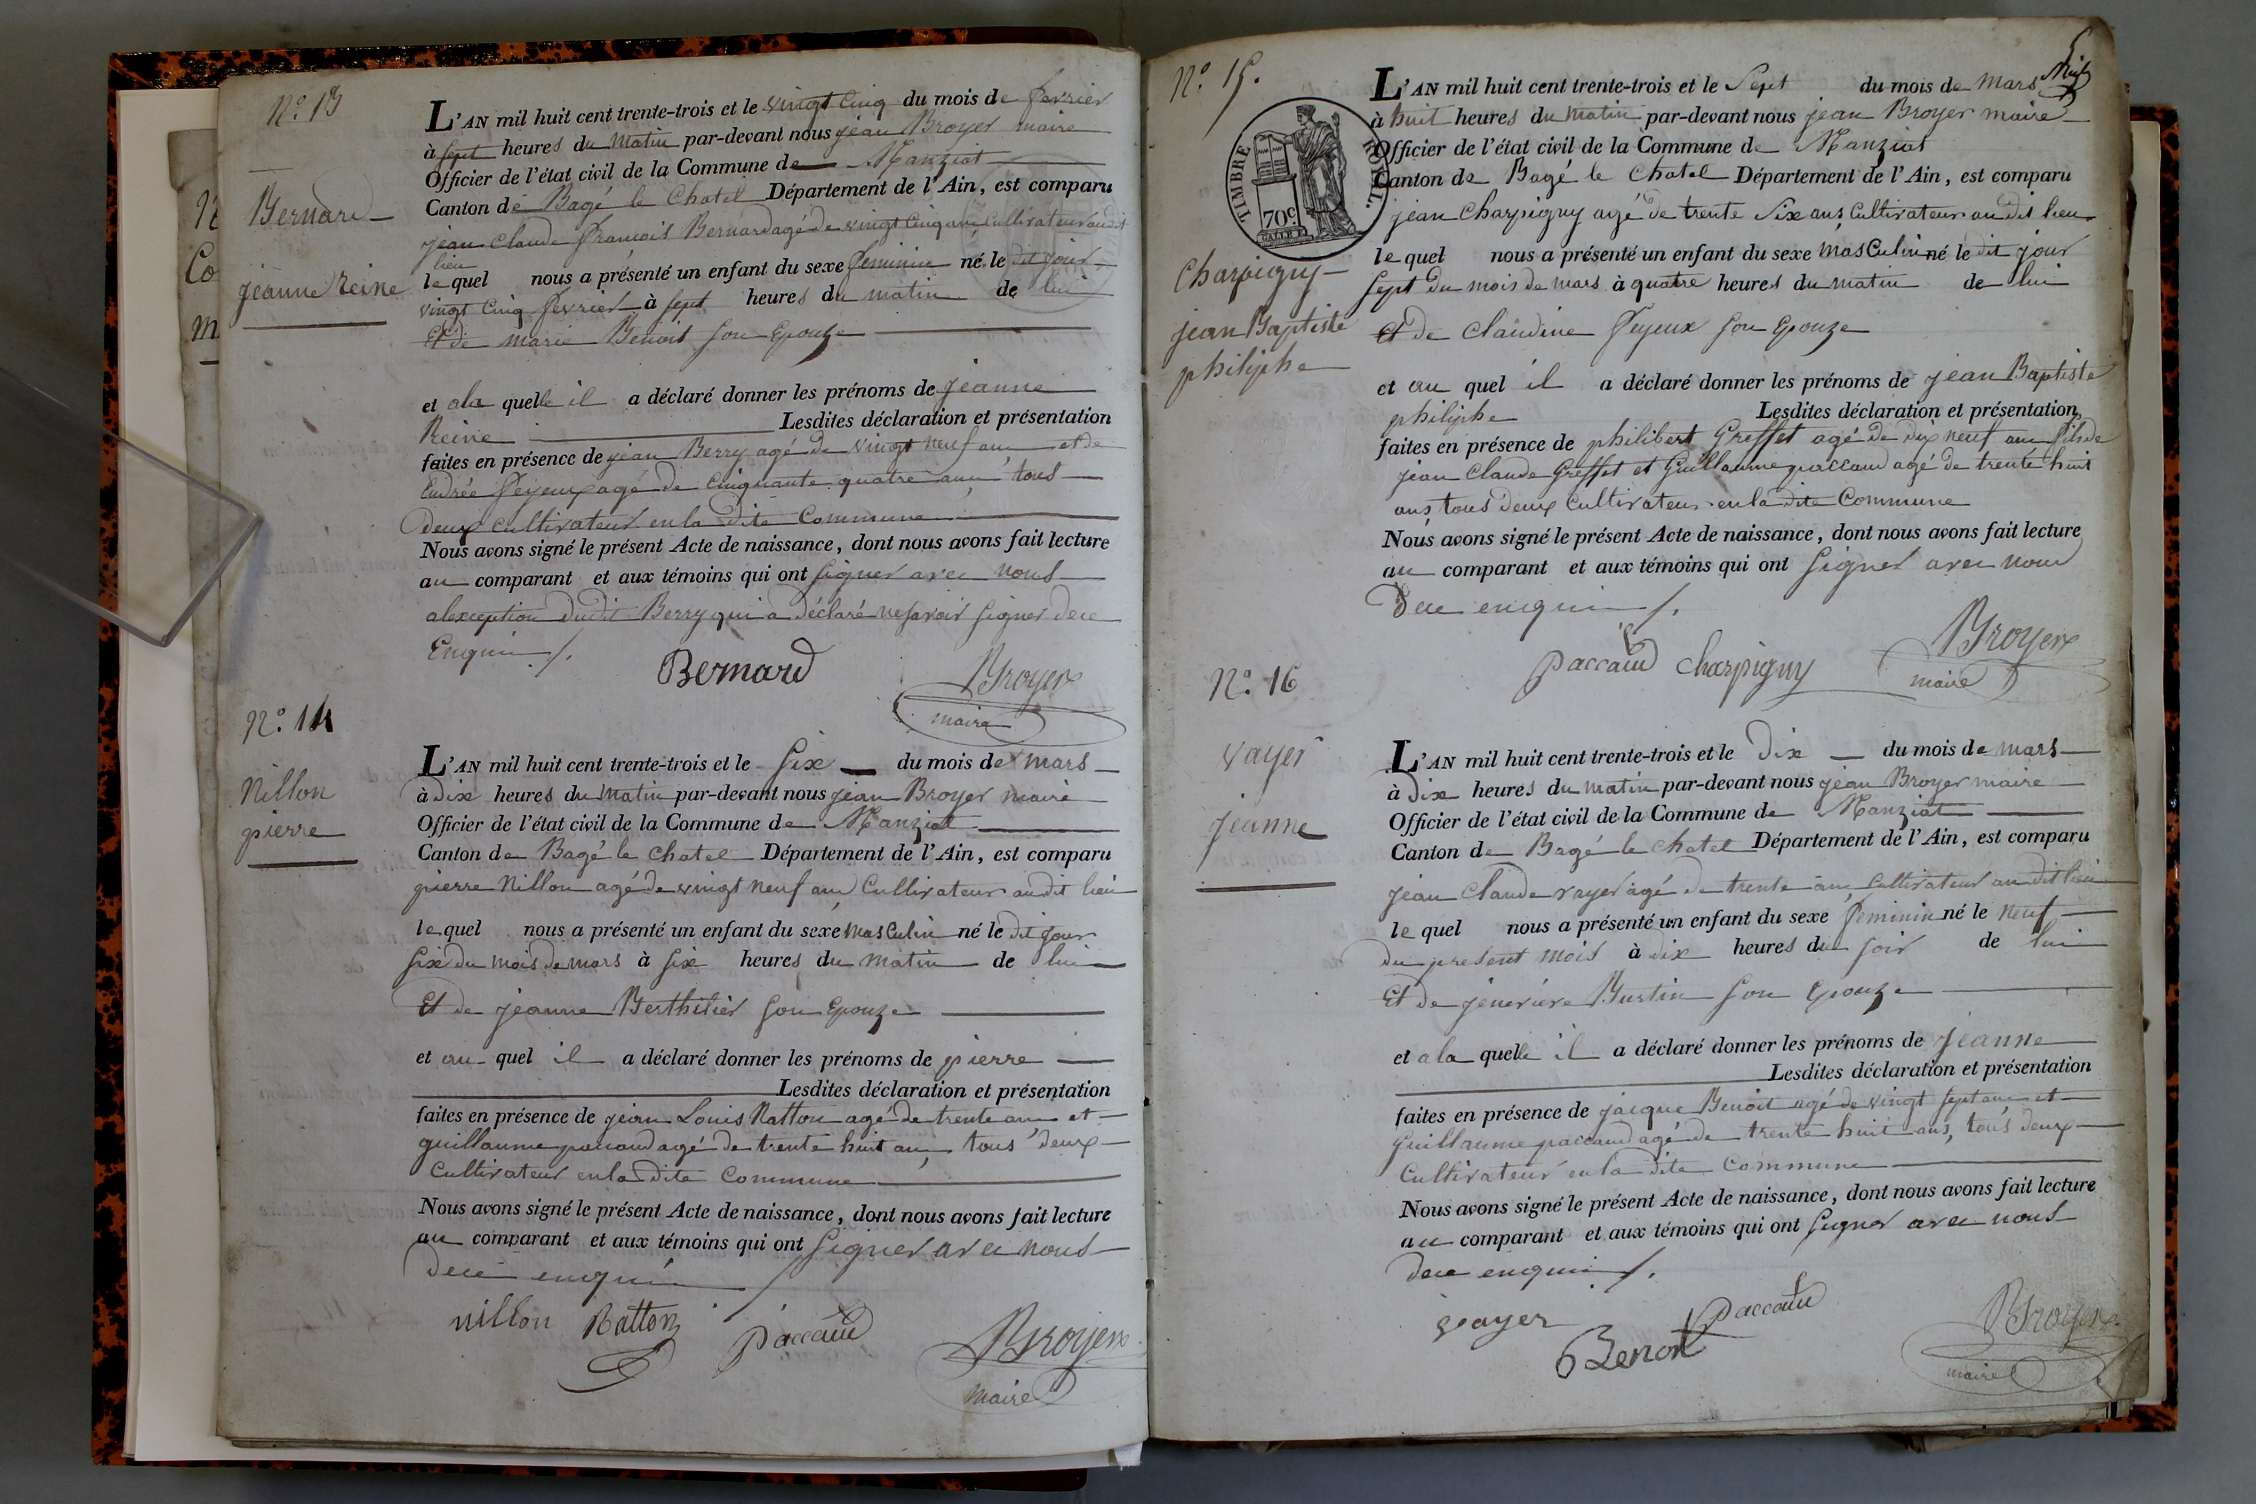 N.º 13
Bernard
jeanne reine
L'AN mil huit cent trente-trois et le vingt cinq du mois de fevrier
à sept heures du matin par-devant nous jean Broyer maire
Officier de l'état civil de la Commune de Manziat
Canton de Bagé le Chatel Département de l'Ain, est comparu
jean claude francois Bernard agé de vingt cinq ans cultivateur audit
lieu
le quel nous a présenté un enfant du sexe feminin né le dit jour
vingt cinq fevrier à sept heures du matin de lui
Et de marie Benoit son Epouze
et a la quelle il a déclaré donner les prénoms de jeanne
Reine Lesdites déclaration et présentation
faites en présence de jean Berry agé de vingt neuf ans et de
Endrée feyeux agé de cinquante quatre ans tous
Deux cultivateur en la dite commune
Nous avons signé le présent Acte de naissance, dont nous avons fait lecture
au comparant et aux témoins qui ont signer avec nous
alexception dudit Berry qui a déclaré ne savoir signer dece
Enquis /.
Bernard
Broyer
maire
N.º 14
Nillon
pierre
L'AN mil huit cent trente-trois et le Six du mois de mars
à dix heures du matin par-devant nous jean Broyer maire
Officier de l'état civil de la Commune de Manziat
Canton de Bagé le chatel Département de l'Ain, est comparu
pierre Nillon agé de vingt neuf ans Cultivateur audit lieu
le quel nous a présenté un enfant du sexe masculin né le dit jour
six du mois de mars à six heures du matin de lui
Et de jeanne Berthilier son Epouze
et au quel il a déclaré donner les prénoms de pierre
Lesdites déclaration et présentation
faites en présence de jean Louis Natton agé de trente ans et
guillaume paccaud agé de trente huit ans, tous deux
Cultivateur en la dite commune
Nous avons signé le présent Acte de naissance, dont nous avons fait lecture
au comparant et aux témoins qui ont signer avec nous
dece enquis /
nillon Natton paccaud
Broyer
maire
5
N.º 15.
TIMBRE ROYAL.
70c.
Charpigny
jean Baptiste
philiphe
L'AN mil huit cent trente-trois et le Sept du mois de Mars
à huit heures du matin par-devant nous jean Broyer maire
Officier de l'état civil de la Commune de Manziat
Canton de Bagé le Chatel Département de l'Ain, est comparu
jean Charpigny agé de trente six ans Cultivateur au dit lieu
le quel nous a présenté un enfant du sexe masculin né le dit jour
sept du mois de mars à quatre heures du matin de lui
Et de Claudine feyeux son Epouze
et au quel il a déclaré donner les prénoms de jean Baptiste
philiphe Lesdites déclaration et présentation
faites en présence de philibert Greffet agé de dix neuf ans fils de
jean Claude Greffet et Guillaume paccaud agé de trente huit
ans, tous deux Cultivateur en la dite Commune
Nous avons signé le présent Acte de naissance, dont nous avons fait lecture
au comparant et aux témoins qui ont signer avec nous
dece enquis /.
paccaud charpigny
Broyer
maire
N.º 16
vayer
jeanne
L'AN mil huit cent trente-trois et le Dix du mois de mars
à Dix heures du matin par-devant nous jean Broyer maire
Officier de l'état civil de la Commune de Manziat
Canton de Bagé le chatel Département de l'Ain, est comparu
jean Claude vayer agé de trente ans, cultivateur au dit lieu
le quel nous a présenté un enfant du sexe feminin né le neuf
du present mois à dix heures du soir de lui
Et de jeneviere Burtin son Epouze
et a la quelle il a déclaré donner les prénoms de jeanne
Lesdites déclaration et présentation
faites en présence de jacque Benoit agé de vingt sept ans et
Guillaume paccaud agé de trente huit ans, tous deux
Cultivateur en la dite commune
Nous avons signé le présent Acte de naissance, dont nous avons fait lecture
au comparant et aux témoins qui ont signer avec nous
dece enquis /.
vayer paccaud
Benoit
Broyer
maire